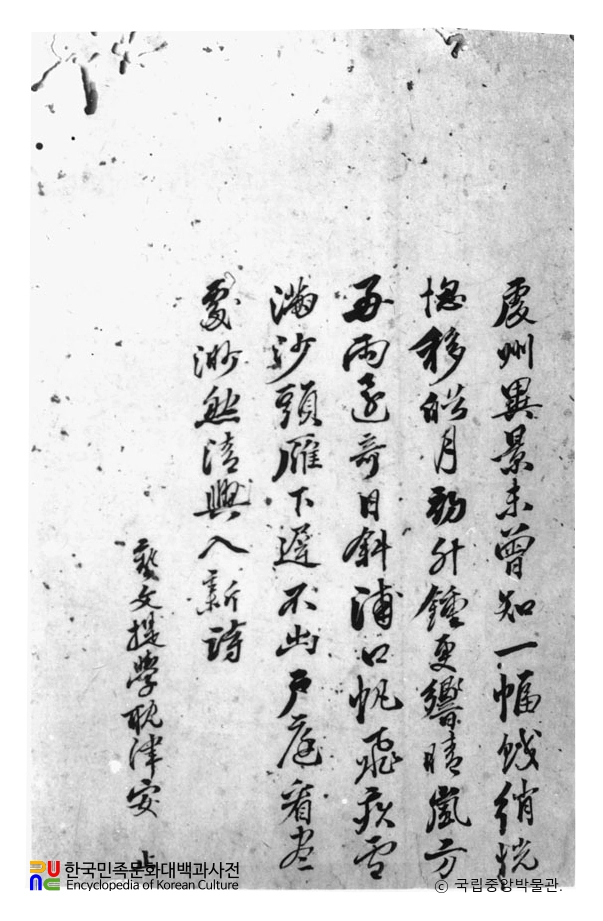 虔州異景未曾知一幅鮫綃恍
惚移皓月初升鍾更響晴嵐方
再雨還奇日斜浦口帆飛疾雪
滿沙頭雁下遲不出戶庭看盡
處渺然清興入新詩
藝文提學耽津安 止
한국민족문화대백과사전
Encyclopedia of Korean Culture
© 국립중앙박물관.